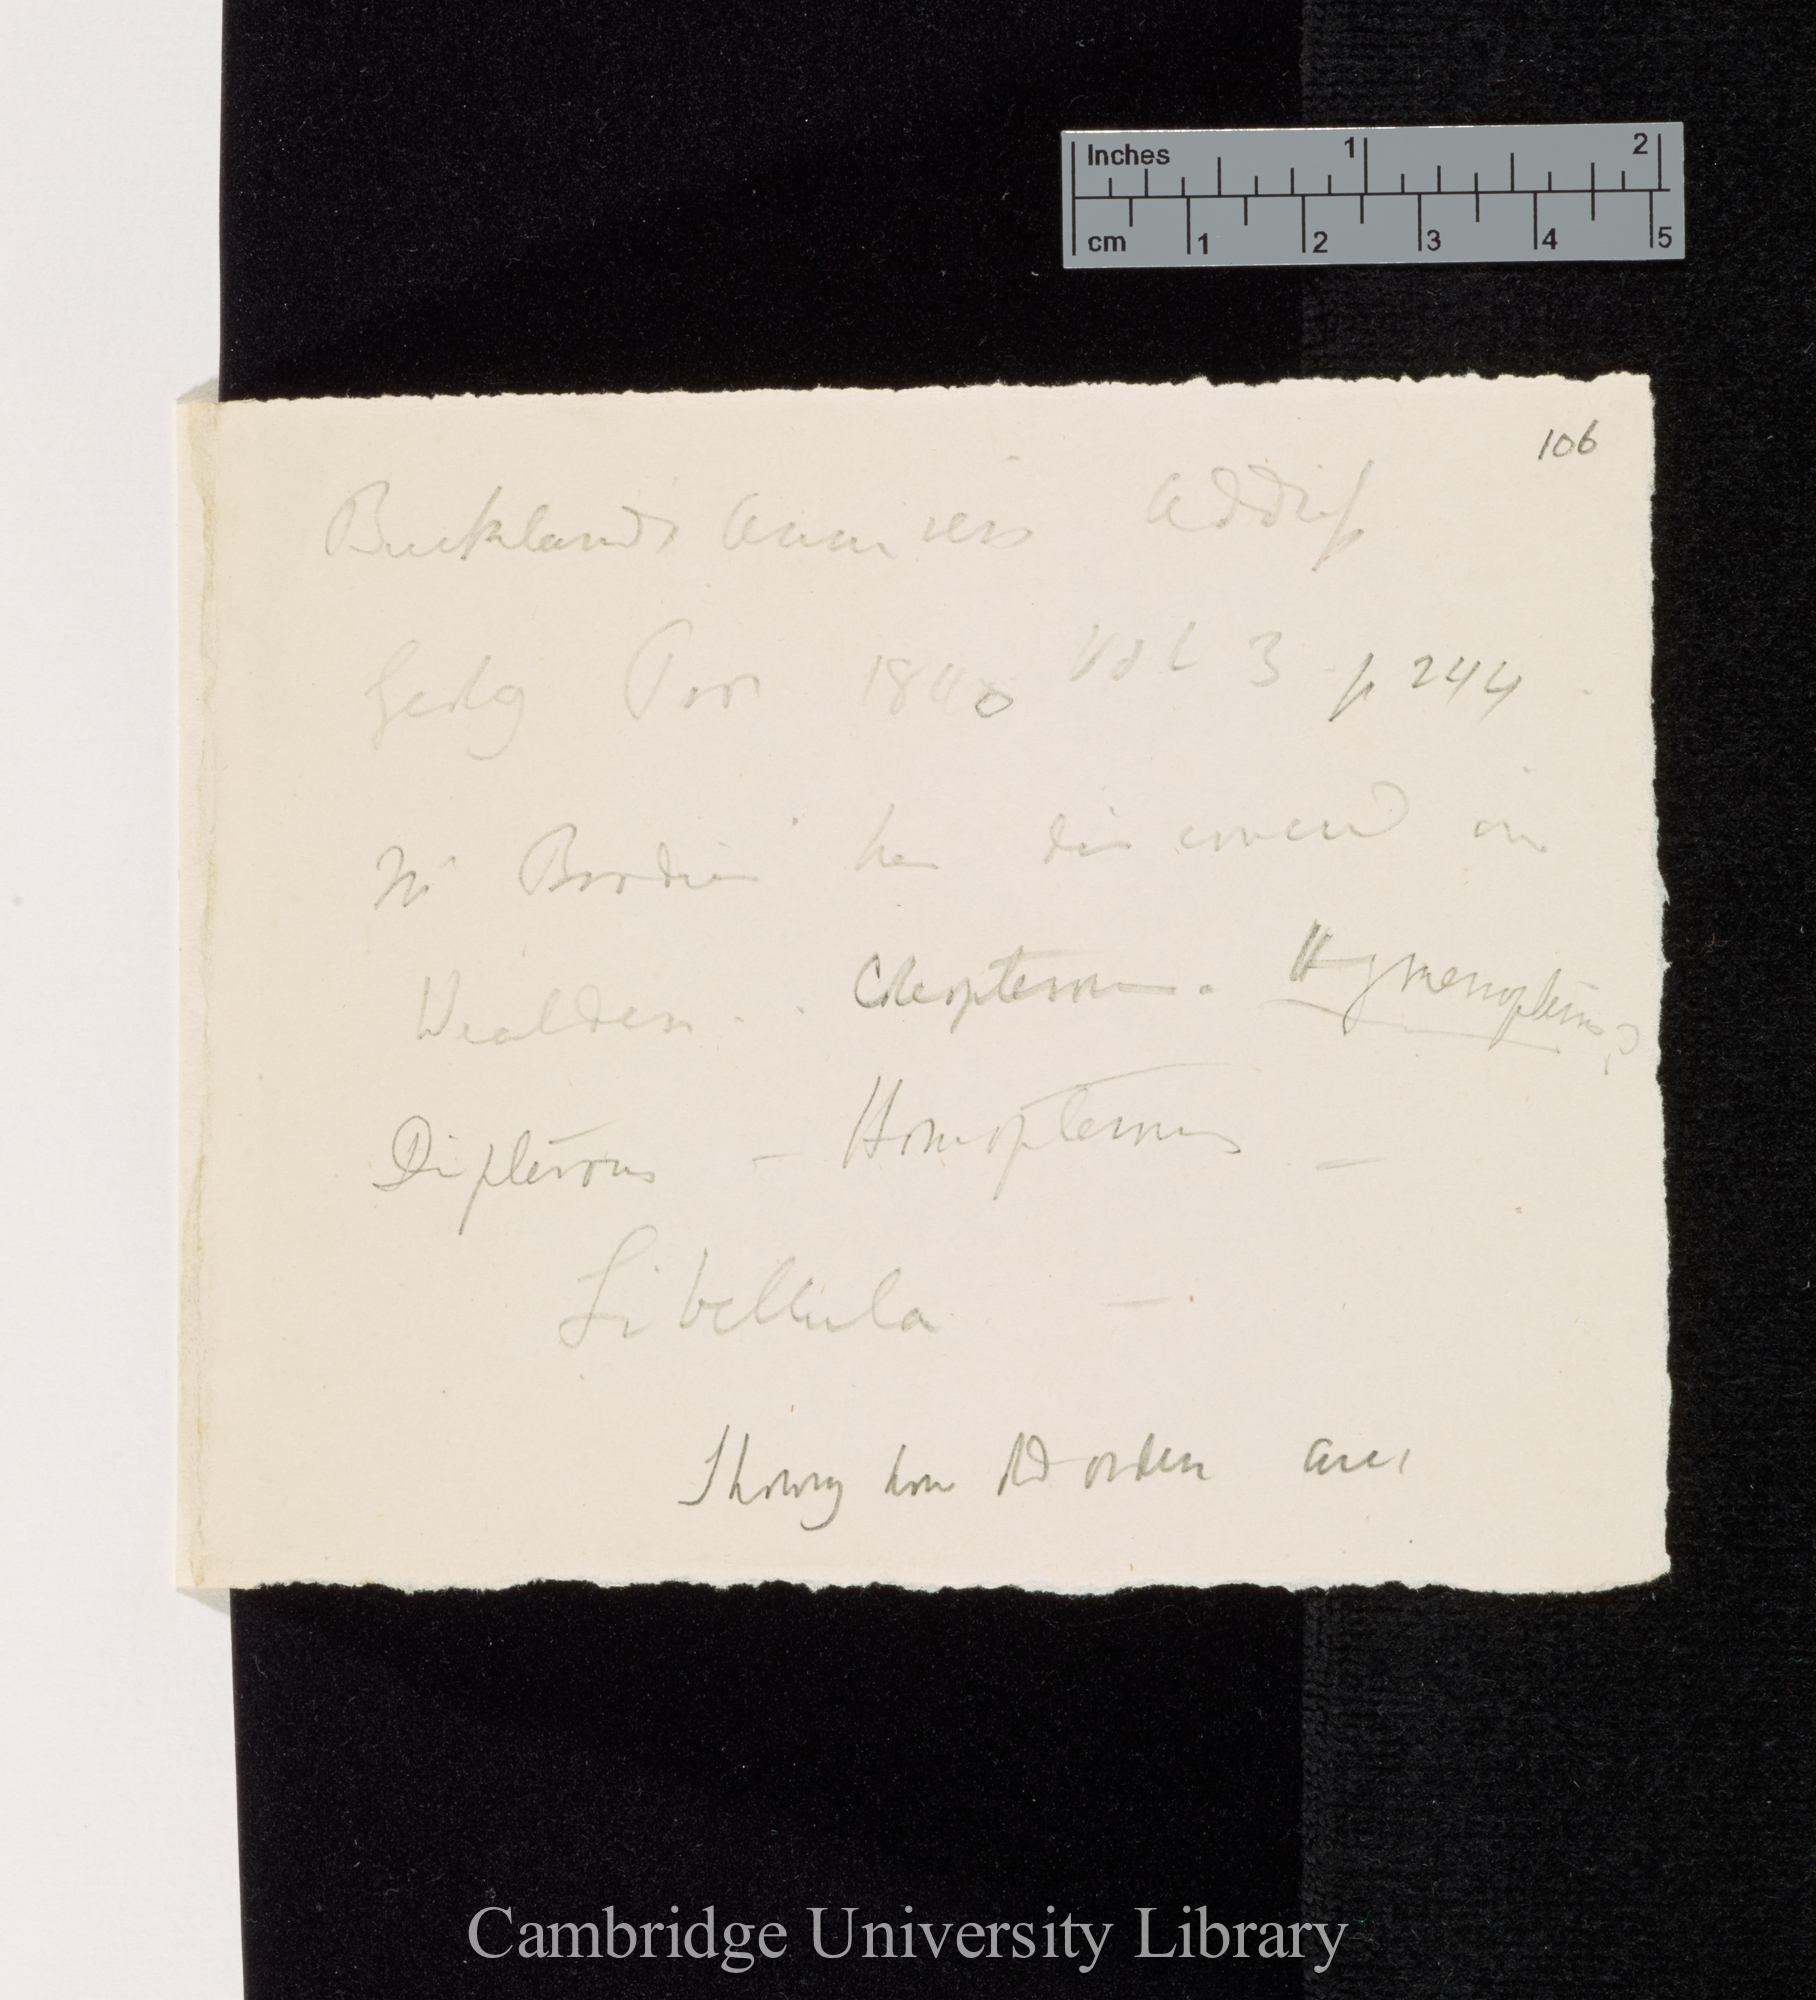 Inches 1 2
cm 1 2 3 4 5
106
Bucklands Annivers Address
Geolog Proc 1840 Vol 3 p 244
Mr Brodie has discovered in
Wealden . . Coleopterous. Hymenopterous?
Dipterous – Homopterous –
Libellula –
Showing how old orders are,
Cambridge University Library